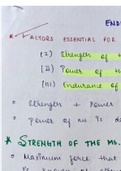 END
* FACTORS ESSENTIAL FOR
(I) Strength of
(II) Power of
(III) Endurance of
Strength + Power
Power of
* STRENGTH OF THE MS.
Maximum force that